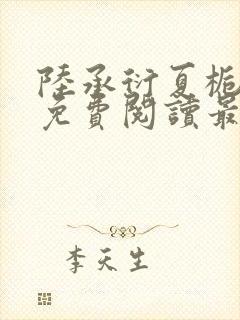 陸承衍夏梔
免費閱讀最
李天生